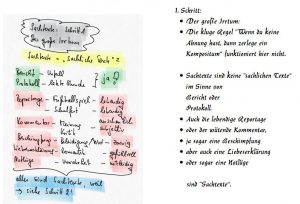 Sachtexte: Schritt 1
Der große Irrtum
Sachtexte = „Sachliche Texte"?
Bericht - Unfall
Protokoll - letzte Stunde
ja
Reportage - Fußballspiel - lebendig
Kommentar - Meinung
Beschimpfung - Beleidigung/Wut
Liebeserklärung - Romantik - gefühlvoll
Notlüge
alles sind Sachtexte, weil
→ siehe Schritt 2!
1. Schritt:
• Der große Irrtum:
• Die kluge Regel "Wenn du keine
Ahnung hast, dann zerlege ein
Kompositum" funktioniert hier nicht.
• Sachtexte sind keine "sachlichen Texte"
im Sinne von
Bericht oder
Protokoll.
• Auch die lebendige Reportage
• oder der wütende Kommentar,
• ja sogar eine Beschimpfung
• aber auch eine Liebeserklärung
• oder sogar eine Notlüge
sind "Sachtexte".